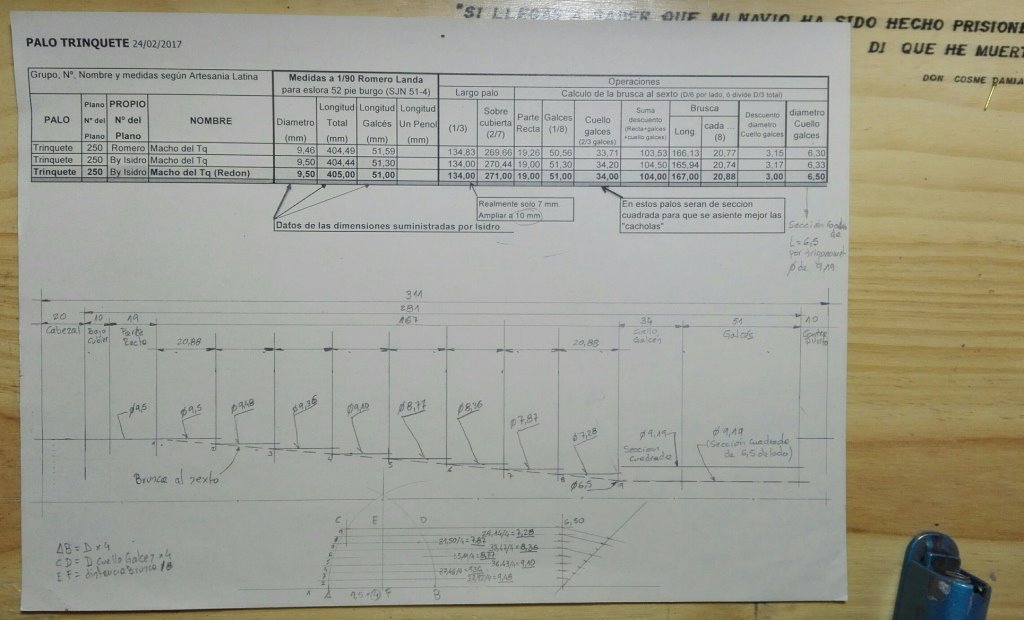 "SI LLEGAS A SABER QUE MI NAVIO HA SIDO HECHO PRISIONE
DI QUE HE MUERT
DON COSME DAMIA
PALO TRINQUETE 24/02/2017
Grupo, Nº, Nombre y medidas según Artesania Latina
Medidas a 1/90 Romero Landa
para eslora 52 pie burgo (SJN 51-4)
Operaciones
Largo palo
Calculo de la brusca al sexto (D/6 por lado, ó divide D/3 total)
PALO
Plano Nº del Plano
PROPIO Nº del Plano
NOMBRE
Diametro (mm)
Longitud Total (mm)
Longitud Galcés (mm)
Longitud Un Penol (mm)
(1/3)
Sobre cubierta (2/7)
Parte Recta
Galces (1/8)
Cuello galces (2/3 galces)
Suma descuento (Recta+galces +cuello galces)
Brusca
Long.
cada ... (8)
Descuento diametro Cuello galces
diametro Cuello galces
Trinquete 250 Romero Macho del Tq 9,46 404,49 51,59 134,83 269,66 19,26 50,56 33,71 103,53 166,13 20,77 3,15 6,30
Trinquete 250 By Isidro Macho del Tq 9,50 404,44 51,30 134,00 270,44 19,00 51,30 34,20 104,50 165,94 20,74 3,17 6,33
Trinquete 250 By Isidro Macho del Tq (Redon) 9,50 405,00 51,00 134,00 271,00 19,00 51,00 34,00 104,00 167,00 20,88 3,00 6,50
Realmente solo 7 mm.
Ampliar a 10 mm
En estos palos seran de seccion
cuadrada para que se asiente mejor las
"cacholas"
Datos de las dimensiones suministradas por Isidro.
Seccion
de
L=6,5
por
Ø de 9,19
311
281
167
20 10 19 34 51 10
Cabezal
Bajo
Parte
Recto
Cuello
Galces
Galcés
20,88 20,88
Ø9,5 Ø9,5 Ø9,48 Ø9,36 Ø9,10 Ø8,77 Ø8,36 Ø7,87 Ø7,28 Ø9,19 Ø9,19
Seccion
cuadrado
(Seccion cuadrado
de 6,5 de lado)
1 2 3 4 5 6 7 8 9
Ø6,5
Brusca al sexto
C E D
6,50
29,14/4=7,28
31,50/4=7,87
33,47/4=8,36
36,43/4=9,10
AB = D x 4
CD = D Cuello Galces x 4
EF = distancia Brusca / 8
1 A F B